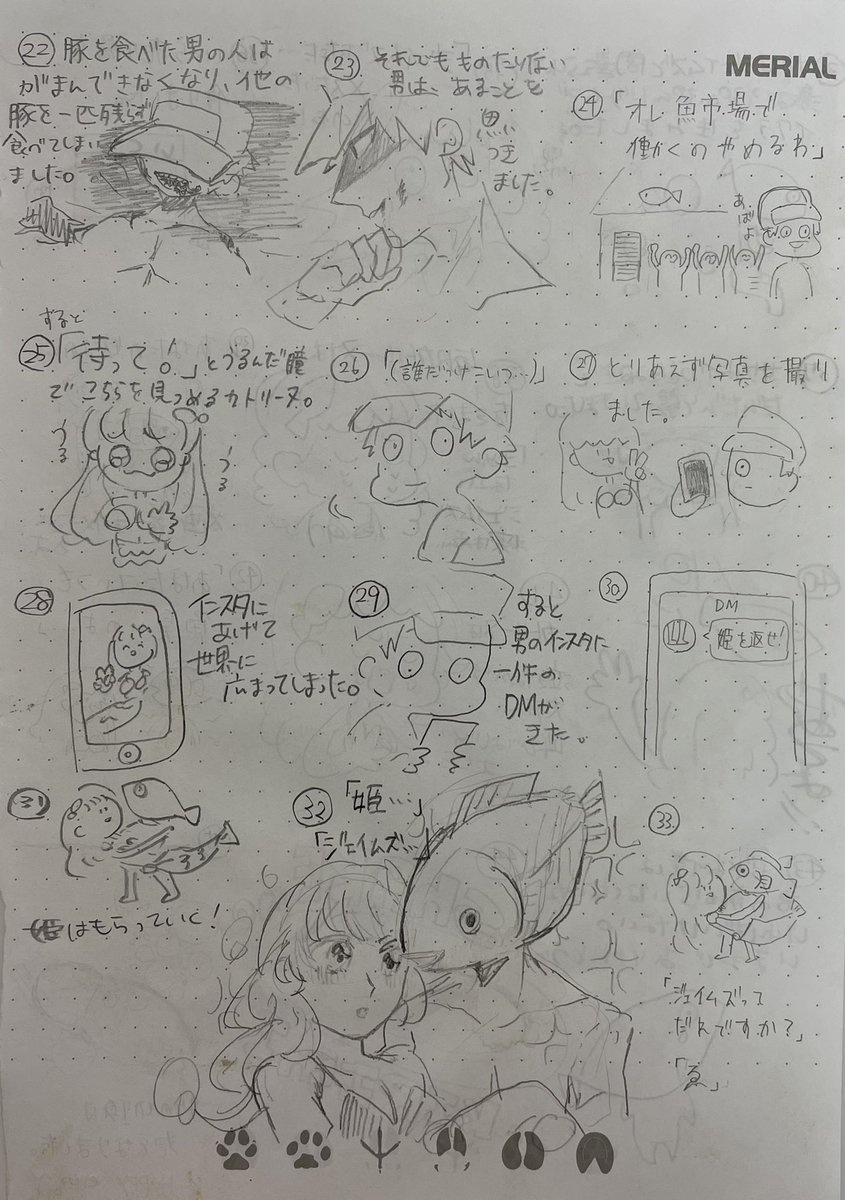 MERIAL
㉒ 豚を食べた男の人は
がまんできなくなり、他の
豚を一匹残らず
食べてしまい
ました。
㉓ それでもものたりない
男は、あることを
思い
つき
ました。
㉔ 「オレ魚市場で
働くのやめるわ」
あばよ
すると
㉕ 「待って!」とうるんだ瞳
でこちらを見つめるカトリーヌ。
うる
うる
㉖ 「(誰だっけこいつ…)」
㉗ とりあえず写真を撮り
ました。
㉘ インスタに
あげて
世界に
広まってしまった。
㉙ すると
男のインスタに
一件の
DMが
きた。
㉚ DM
姫を返せ!
㉛
姫はもらっていく!
㉜ 「姫…」
「ジェイムズ…」
㉝
「ジェイムズって
だれですか?」
「ゑ」